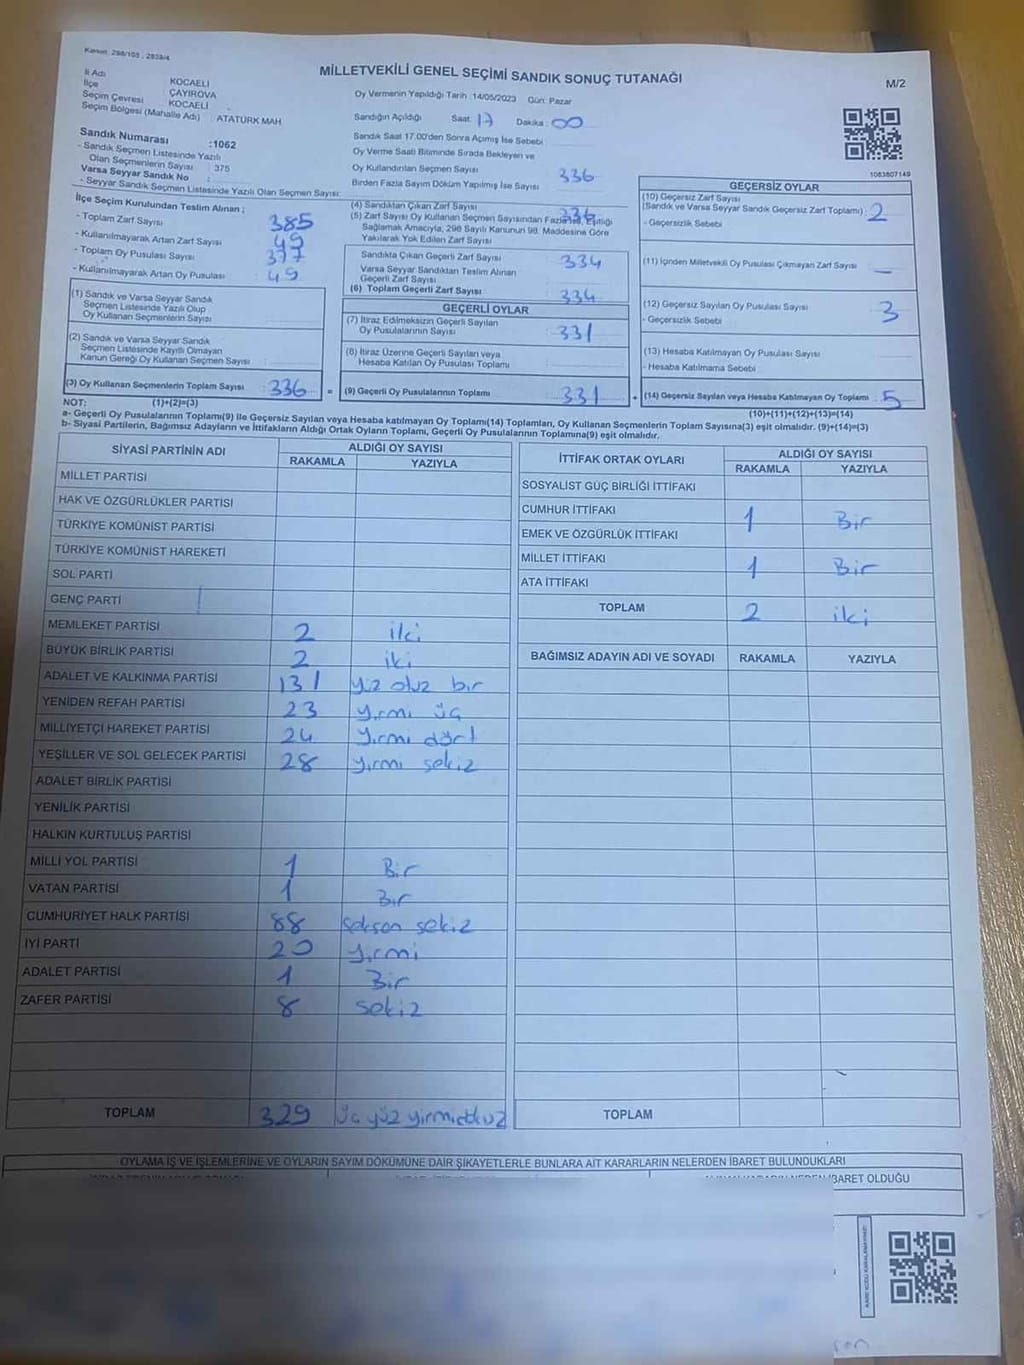 Kanun: 298/105 , 2839/4
MİLLETVEKİLİ GENEL SEÇİMİ SANDIK SONUÇ TUTANAĞI
M/2
İl Adı KOCAELİ
İlçe ÇAYIROVA
Seçim Çevresi KOCAELİ
Seçim Bölgesi (Mahalle Adı) : ATATÜRK MAH
Sandık Numarası :1062
- Sandık Seçmen Listesinde Yazılı
Olan Seçmenlerin Sayısı : 375
Varsa Seyyar Sandık No :
- Seyyar Sandık Seçmen Listesinde Yazılı Olan Seçmen Sayısı:
İlçe Seçim Kurulundan Teslim Alınan ;
- Toplam Zarf Sayısı 385
- Kullanılmayarak Artan Zarf Sayısı 49
- Toplam Oy Pusulası Sayısı 377
- Kullanılmayarak Artan Oy Pusulası : 49
(1) Sandık ve Varsa Seyyar Sandık
Seçmen Listesinde Yazılı Olup
Oy Kullanan Seçmenlerin Sayısı
(2) Sandık ve Varsa Seyyar Sandık
Seçmen Listesinde Kayıtlı Olmayan
Kanun Gereği Oy Kullanan Seçmen Sayısı
(3) Oy Kullanan Seçmenlerin Toplam Sayısı : 336 =
(1)+(2)=(3)
Oy Vermenin Yapıldığı Tarih :14/05/2023 Gün: Pazar
Sandığın Açıldığı Saat: 17 Dakika : 00
Sandık Saat 17.00'den Sonra Açımış İse Sebebi
Oy Verme Saati Bitiminde Sırada Bekleyen ve
Oy Kullandırılan Seçmen Sayısı 336
Birden Fazla Sayım Döküm Yapılmış İse Sayısı
(4) Sandıktan Çıkan Zarf Sayısı 336
(5) Zarf Sayısı Oy Kullanan Seçmen Sayısından Fazla İse, Eşitliği
Sağlamak Amacıyla, 298 Sayılı Kanunun 98. Maddesine Göre
Yakılarak Yok Edilen Zarf Sayısı
Sandıkta Çıkan Geçerli Zarf Sayısı 334
Varsa Seyyar Sandıktan Teslim Alınan
Geçerli Zarf Sayısı
(6) Toplam Geçerli Zarf Sayısı 334
GEÇERLİ OYLAR
(7) İtiraz Edilmeksizin Geçerli Sayılan
Oy Pusulalarının Sayısı 331
(8) İtiraz Üzerine Geçerli Sayılan veya
Hesaba Katılan Oy Pusulası Toplamı
(9) Geçerli Oy Pusulalarının Toplamı 331 +
1083807149
GEÇERSİZ OYLAR
(10) Geçersiz Zarf Sayısı
(Sandık ve Varsa Seyyar Sandık Geçersiz Zarf Toplamı) : 2
- Geçersizlik Sebebi
(11) İçinden Milletvekili Oy Pusulası Çıkmayan Zarf Sayısı —
(12) Geçersiz Sayılan Oy Pusulası Sayısı 3
- Geçersizlik Sebebi
(13) Hesaba Katılmayan Oy Pusulası Sayısı
- Hesaba Katılmama Sebebi
(14) Geçersiz Sayılan veya Hesaba Katılmayan Oy Toplamı : 5
(10)+(11)+(12)+(13)=(14)
NOT:
a- Geçerli Oy Pusulalarının Toplamı(9) ile Geçersiz Sayılan veya Hesaba katılmayan Oy Toplamı(14) Toplamları, Oy Kullanan Seçmenlerin Toplam Sayısına(3) eşit olmalıdır. (9)+(14)=(3)
b- Siyasi Partilerin, Bağımsız Adayların ve İttifakların Aldığı Ortak Oyların Toplamı, Geçerli Oy Pusulalarının Toplamına(9) eşit olmalıdır.
SİYASİ PARTİNİN ADI ALDIĞI OY SAYISI
RAKAMLA YAZIYLA
MİLLET PARTİSİ
HAK VE ÖZGÜRLÜKLER PARTİSİ
TÜRKİYE KOMÜNİST PARTİSİ
TÜRKİYE KOMÜNİST HAREKETİ
SOL PARTİ
GENÇ PARTİ
MEMLEKET PARTİSİ 2 iki
BÜYÜK BİRLİK PARTİSİ 2 iki
ADALET VE KALKINMA PARTİSİ 131 yüz otuz bir
YENİDEN REFAH PARTİSİ 23 yirmi üç
MİLLİYETÇİ HAREKET PARTİSİ 24 yirmi dört
YEŞİLLER VE SOL GELECEK PARTİSİ 28 yirmi sekiz
ADALET BİRLİK PARTİSİ
YENİLİK PARTİSİ
HALKIN KURTULUŞ PARTİSİ
MİLLİ YOL PARTİSİ 1 Bir
VATAN PARTİSİ 1 Bir
CUMHURİYET HALK PARTİSİ 88 seksen sekiz
İYİ PARTİ 20 yirmi
ADALET PARTİSİ 1 Bir
ZAFER PARTİSİ 8 sekiz
TOPLAM 329 üç yüz yirmidokuz
İTTİFAK ORTAK OYLARI ALDIĞI OY SAYISI
RAKAMLA YAZIYLA
SOSYALİST GÜÇ BİRLİĞİ İTTİFAKI
CUMHUR İTTİFAKI 1 Bir
EMEK VE ÖZGÜRLÜK İTTİFAKI
MİLLET İTTİFAKI 1 Bir
ATA İTTİFAKI
TOPLAM 2 iki
BAĞIMSIZ ADAYIN ADI VE SOYADI RAKAMLA YAZIYLA
TOPLAM
OYLAMA İŞ VE İŞLEMLERİNE VE OYLARIN SAYIM DÖKÜMÜNE DAİR ŞİKAYETLERLE BUNLARA AİT KARARLARIN NELERDEN İBARET BULUNDUKLARI
İBARET OLDUĞU